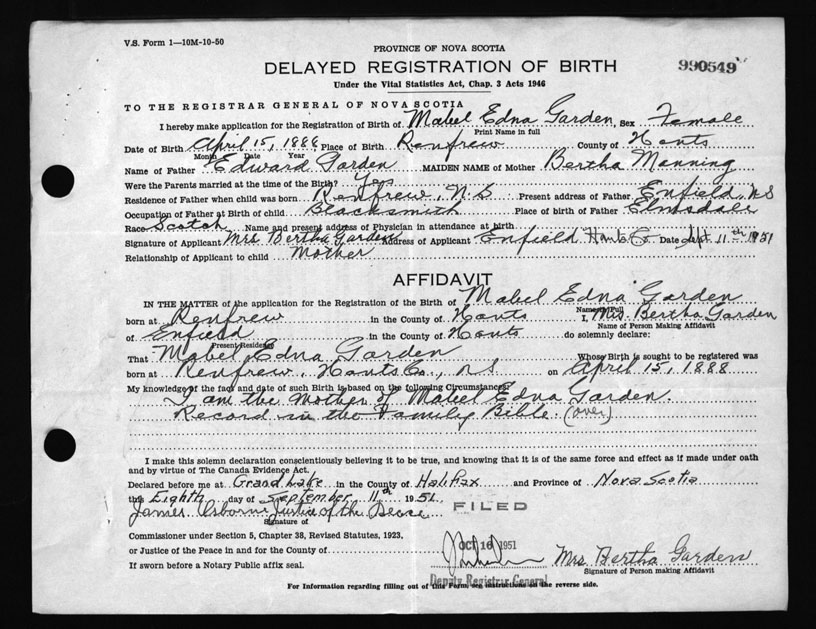 V.S. Form 1—10M-10-50
PROVINCE OF NOVA SCOTIA
DELAYED REGISTRATION OF BIRTH
990549
Under the Vital Statistics Act, Chap. 3 Acts 1946
TO THE REGISTRAR GENERAL OF NOVA SCOTIA
I hereby make application for the Registration of Birth of Mabel Edna Garden, Sex Female
Print Name in full
Date of Birth April 15, 1888 Place of Birth Renfrew County of Hants
Month Date Year
Name of Father Edward Garden MAIDEN NAME of Mother Bertha Manning
Were the Parents married at the time of the Birth? Yes
Residence of Father when child was born Renfrew, N.S Present address of Father Enfield, NS
Occupation of Father at Birth of child Blacksmith Place of birth of Father Elmsdale
Race Scotch Name and present address of Physician in attendance at birth
Signature of Applicant Mrs Bertha Garden Address of Applicant Enfield Hants Co. Date Sept 11th 1951
Relationship of Applicant to child Mother
AFFIDAVIT
IN THE MATTER of the application for the Registration of the Birth of Mabel Edna Garden
Name in Full
born at Renfrew in the County of Hants I, Mrs. Bertha Garden
Name of Person Making Affidavit
of Enfield in the County of Hants do solemnly declare:
Present Residence
That Mabel Edna Garden Whose Birth is sought to be registered was
born at Renfrew, Hants Co., N.S on April 15, 1888
My knowledge of the fact and date of such Birth is based on the following Circumstances:
I am the Mother of Mabel Edna Garden.
Record in the Family Bible. (over)
I make this solemn declaration conscientiously believing it to be true, and knowing that it is of the same force and effect as if made under oath
and by virtue of The Canada Evidence Act.
Declared before me at Grand Lake in the County of Halifax and Province of Nova Scotia
this Eighth day of September 11th 1951.
James Osborne Justice of the Peace
FILED
Signature of
Commissioner under Section 5, Chapter 38, Revised Statutes, 1923,
or Justice of the Peace in and for the County of
OCT 16 1951
Mrs Bertha Garden
Signature of Person making Affidavit
If sworn before a Notary Public affix seal.
Deputy Registrar General
For Information regarding filling out of this Form, see instructions on the reverse side.